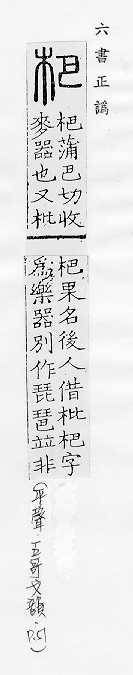 六書正譌
杷
杷蒲巴切收
麥器也又枇
杷果名後人借枇杷字
爲樂器別作琵琶竝非
(平聲．五哥戈韻．P.51)